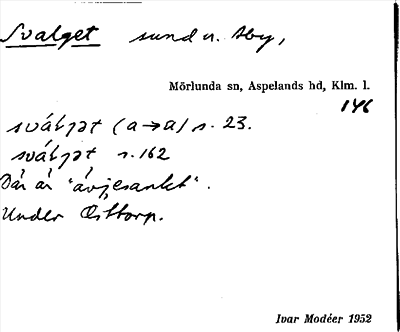 Svalget sund v. Åby,
Mörlunda sn, Aspelands hd, Klm. l.
146
svál̜ȷət (a→a) s. 23.
svál̜ȷət s. 162
Där är "åvjesankt".
Under Östtorp.
Ivar Modéer 1952